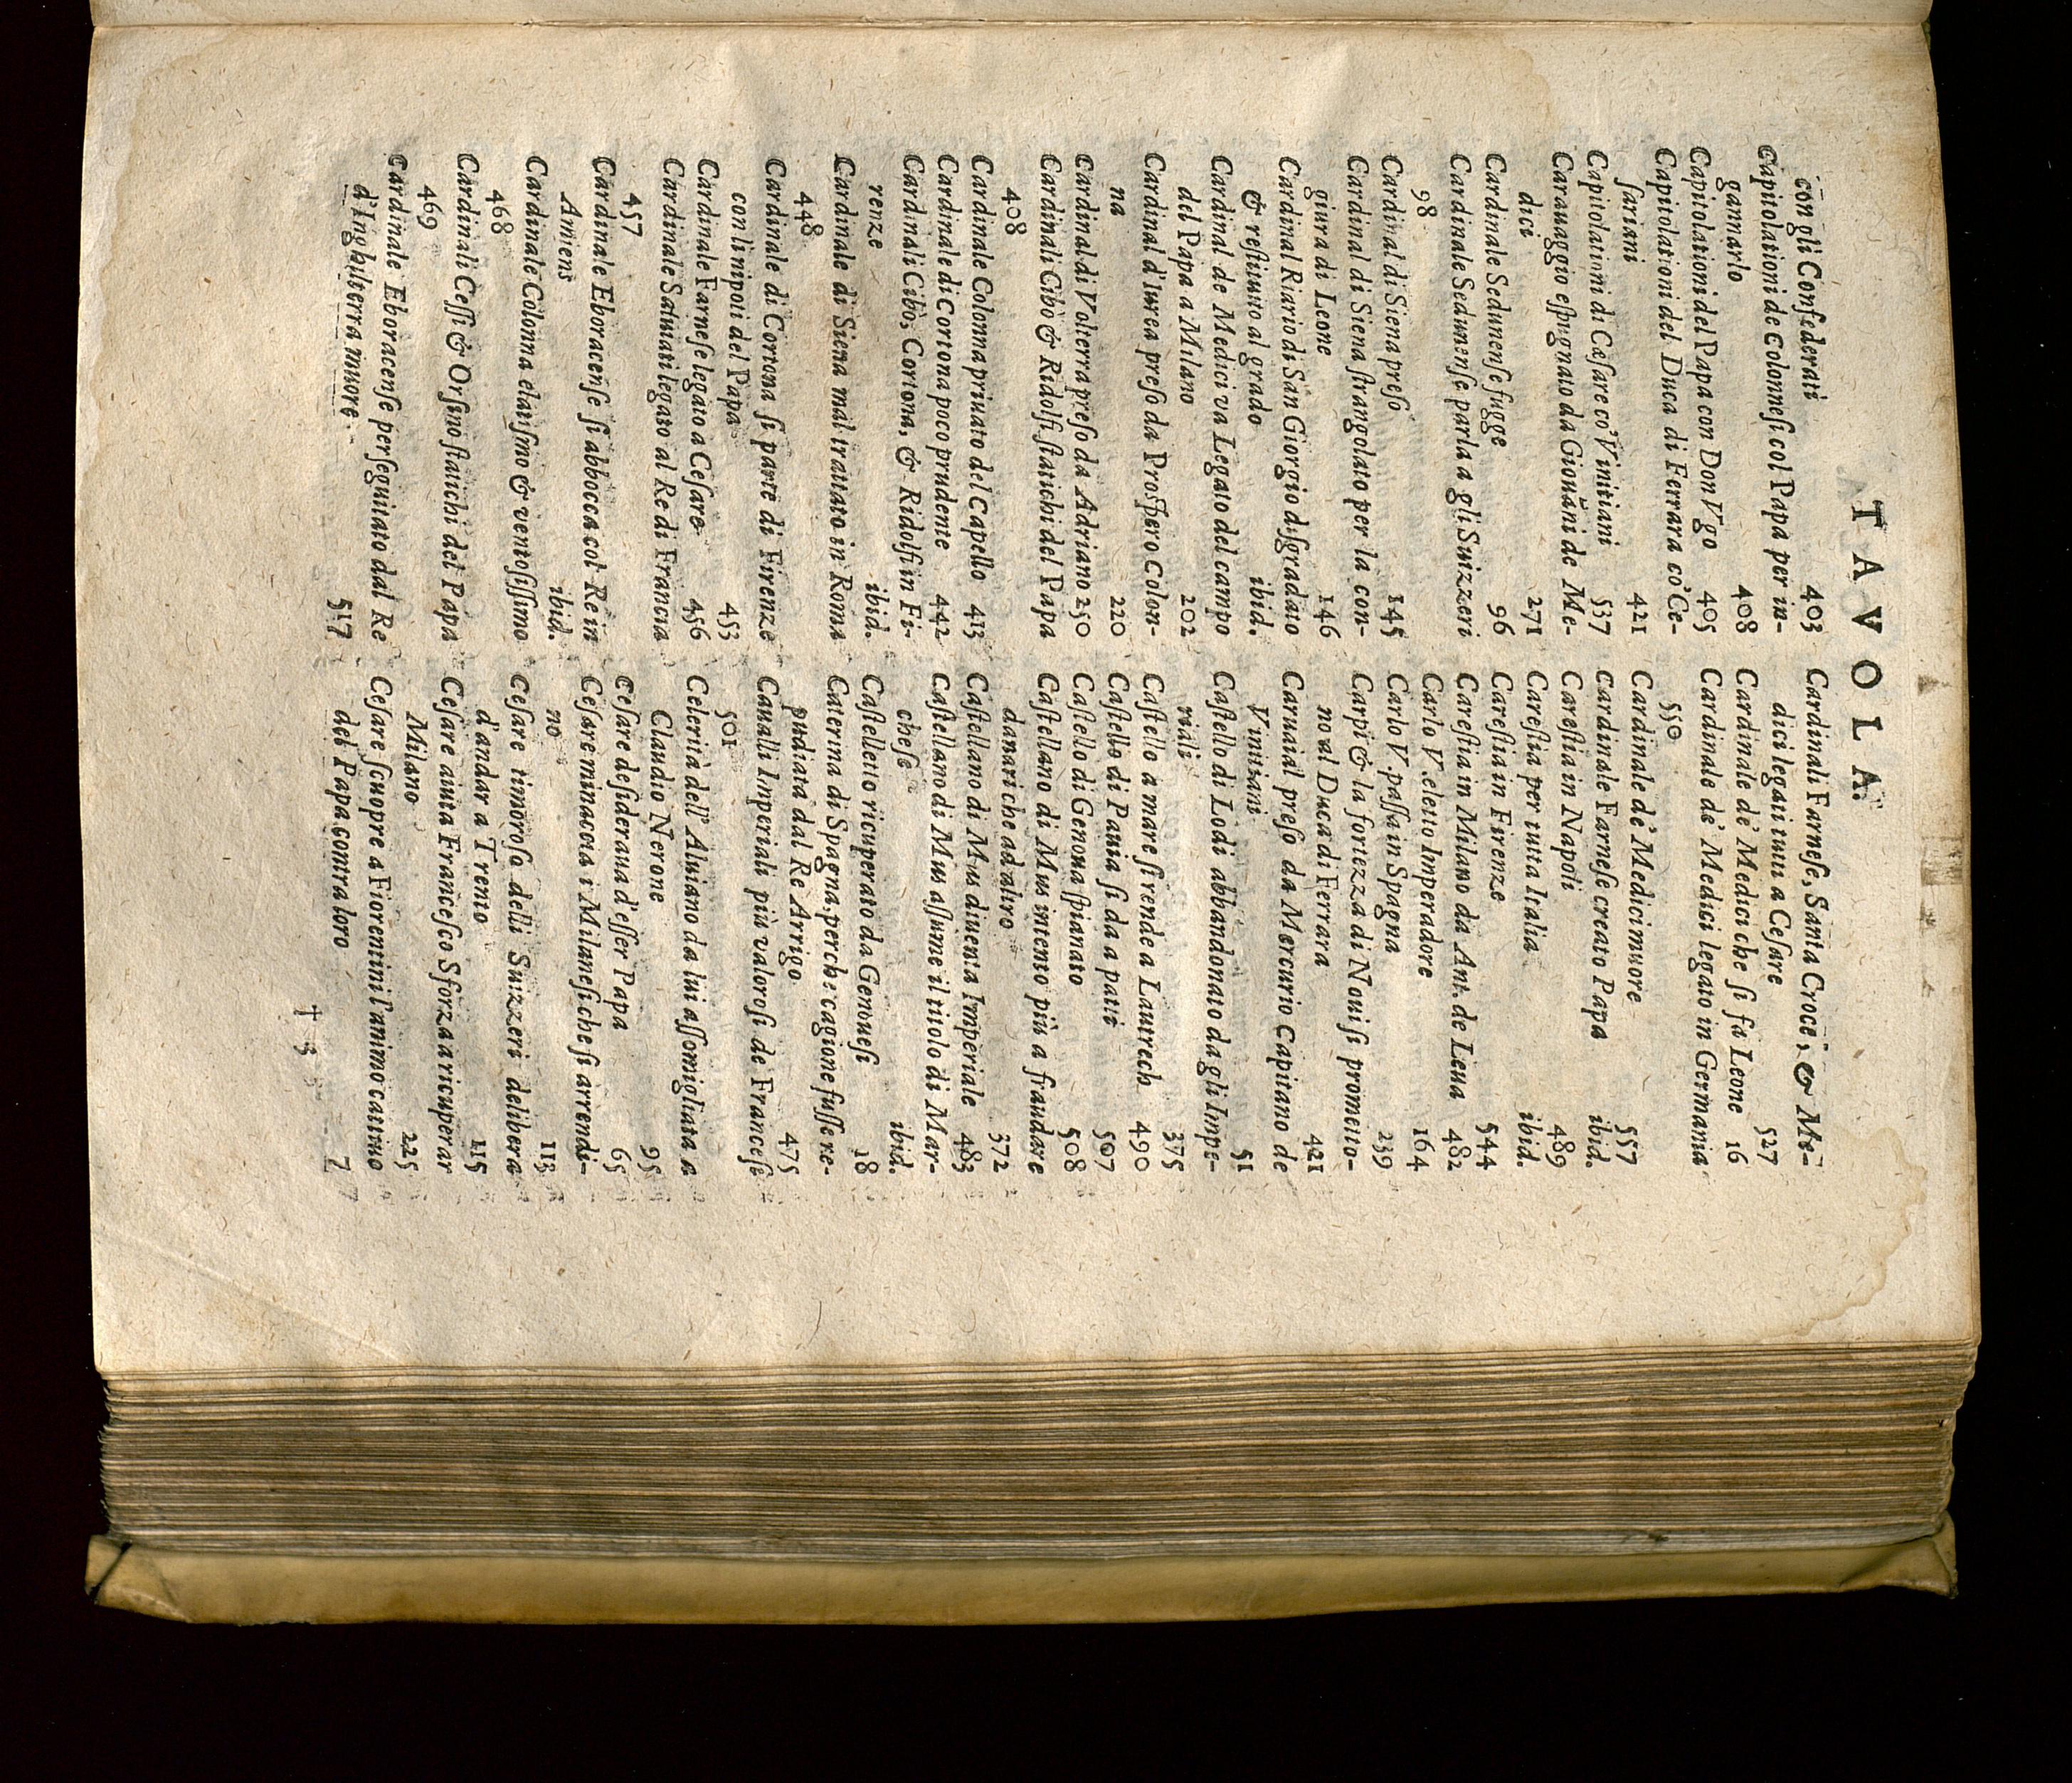 TAVOLA.
con gli Confederati 403
Capitolationi de Colonnesi col Papa per in-
gannarlo 408
Capitolationi del Papa con Don Vgo 405
Capitolationi del Duca di Ferrara co' Ce-
sariani 421
Capitolationi di Cesare co' Vinitiani 537
Carauaggio espugnato da Giouãni de Me-
dici 271
Cardinale Sedunense fugge 96
Cardinale Sedunense parla a gli Suizzeri
98
Cardinal di Siena preso 145
Cardinal di Siena strangolato per la con-
giura di Leone 146
Cardinal Riario di San Giorgio disgradato
& restituito al grado ibid.
Cardinal de Medici va Legato del campo
del Papa a Milano 202
Cardinal d'Iurea preso da Prospero Colon-
na 220
Cardinal di Volterra preso da Adriano 250
Cardinali Cibò & Ridolfi statichi del Papa
408
Cardinale Colonna priuato del Capello 413
Cardinale di Cortona poco prudente 442
Cardinali Cibò, Cortona, & Ridolfi in Fi-
renze ibid.
Cardinale di Siena mal trattato in Roma
448
Cardinale di Cortona si parte di Firenze
con li nipoti del Papa 453
Cardinale Farnese legato a Cesare 456
Cardinale Saluiati legato al Re di Francia
457
Cardinale Eboracense si abbocca col Re in
Amiens ibid.
Cardinale Colonna elatissimo & ventosissimo
468
Cardinali Cessi & Orsino statichi del Papa
469
Cardinale Eboracense perseguitato dal Re
d'Inghilterra muore 517
Cardinali Farnese, Santa Croce, & Me-
dici legati tutti a Cesare 527
Cardinale de' Medici che si fa Leone 16
Cardinale de' Medici legato in Germania
550
Cardinale de' Medici muore 557
Cardinale Farnese creato Papa ibid.
Carestia in Napoli 489
Carestia per tutta Italia ibid.
Carestia in Firenze 544
Carestia in Milano da Ant. de Leua 482
Carlo V. eletto Imperadore 164
Carlo V. passa in Spagna 239
Carpi & la fortezza di Noui si promettono
no al Duca di Ferrara 421
Caruaial preso da Mercurio Capitano de
Vinitiani 51
Castello di Lodi abbandonato da gli Inpe-
riali 375
Castello a mare si rende a Lautrech 490
Castello di Pauia si da a patti 507
Castello di Genoua spianato 508
Castellano di Mus intento più a fraudare
danari che ad altro 372
Castellano di Mus diuenta Imperiale 483
Castellano di Mus assume il titolo di Mar-
chese ibid.
Castelletto ricuperato da Genouesi 18
Caterina di Spagna, perche cagione fusse re-
pudiata dal Re Arrigo 475
Caualli Inperiali più valorosi de Francesi
501
Celerità dell' Aluiano da lui assomigliata a
Claudio Nerone 95
Cesare desideraua d'esser Papa 65
Cesare minaccia i Milanesi che si arrendi-
no 113
Cesare timoroso delli Suizzeri delibera
d'andar a Trento 115
Cesare aiuta Francesco Sforza a ricuperar
Milano 225
Cesare scuopre a Fiorentini l'animo cattiuo
del Papa contra loro 7
† 3